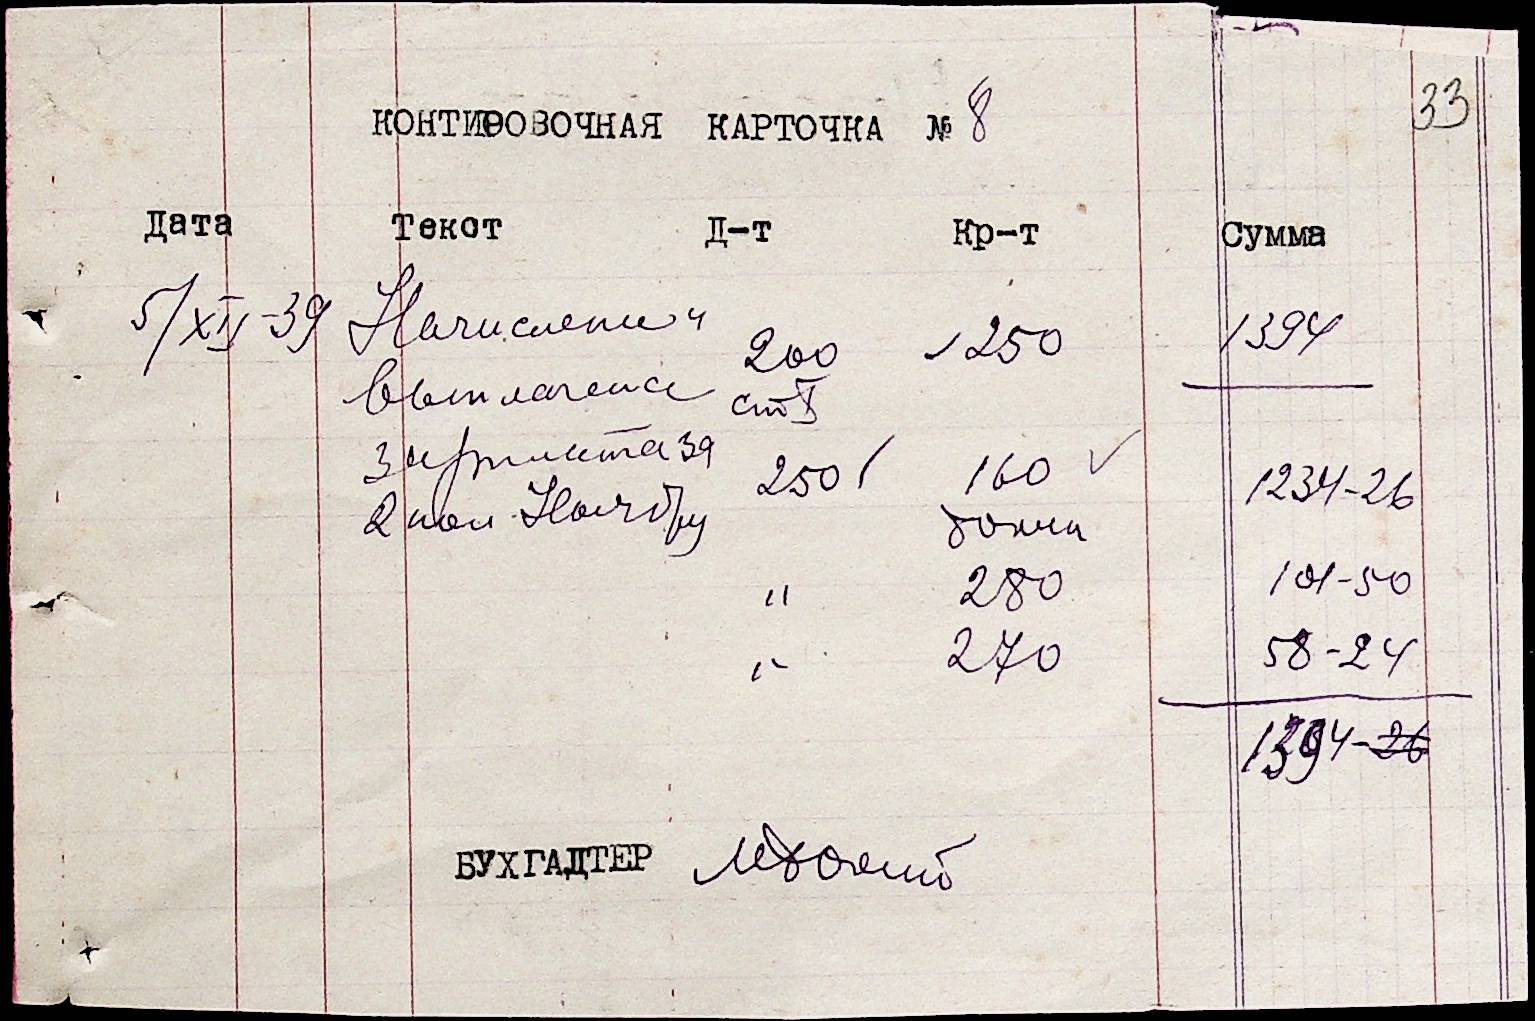 33
КОНТИРОВОЧНАЯ КАРТОЧКА № 8
Дата Текст Д-т Кр-т Сумма
5/XII-39 Начислено и 200 250 1394
выплачена ст I
зарплата за 250 160 1234-26
2 пол. Ноября
" 280 101-50
" 270 58-24
1394-26
БУХГАЛТЕР